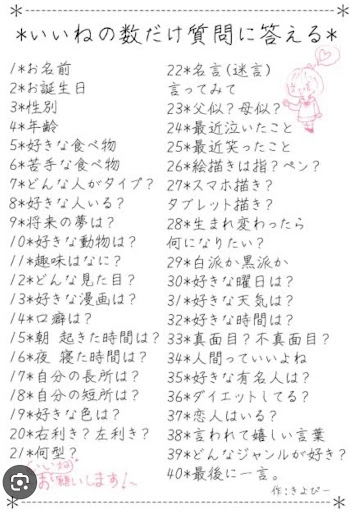 *いいねの数だけ質問に答える*
1*お名前
2*お誕生日
3*性別
4*年齢
5*好きな食べ物
6*苦手な食べ物
7*どんな人がタイプ?
8*好きな人いる?
9*将来の夢は?
10*好きな動物は?
11*趣味はなに?
12*どんな見た目?
13*好きな漫画は?
14*口癖は?
15*朝 起きた時間は?
16*夜 寝た時間は?
17*自分の長所は?
18*自分の短所は?
19*好きな色は?
20*右利き?左利き?
21*何型?
お願いします!
22*名言(迷言)
言ってみて
23*父似?母似?
24*最近泣いたこと
25*最近笑ったこと
26*絵描きは指?ペン?
27*スマホ描き?
タブレット描き?
28*生まれ変わったら
何になりたい?
29*白派か黒派か
30*好きな曜日は?
31*好きな天気は?
32*好きな時間は?
33*真面目?不真面目?
34*人間っていいよね
35*好きな有名人は?
36*ダイエットしてる?
37*恋人はいる?
38*言われて嬉しい言葉
39*どんなジャンルが好き?
40*最後に一言。
作:きよぴー